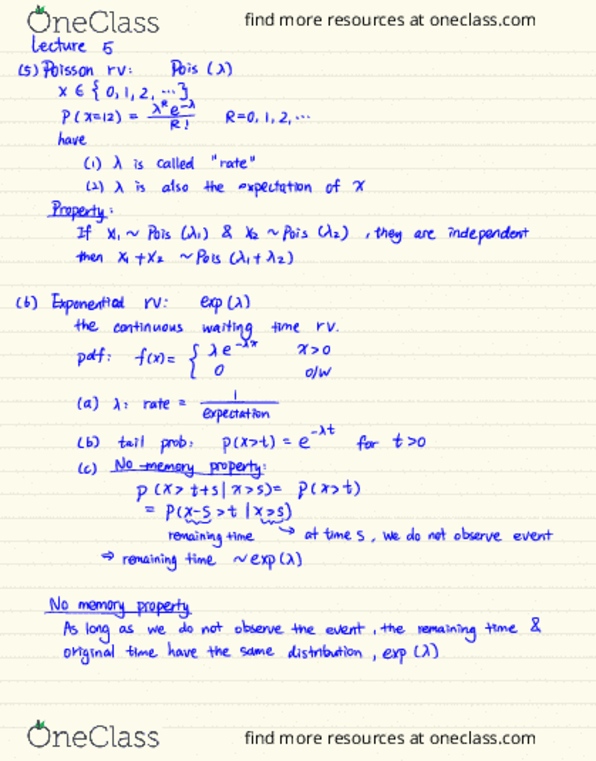 OneClass find more resources at oneclass.com
Lecture 5
(5) Poisson rv: Pois (λ)
X ∈ { 0, 1, 2, ⋯ }
P(x=12) = λ^R e^-λ / R! R=0, 1, 2, ⋯
have
(1) λ is called "rate"
(2) λ is also the expectation of X
Property:
If X₁ ~ Pois (λ₁) & X₂ ~ Pois (λ₂) , they are independent
then X₁ + X₂ ~ Pois (λ₁ + λ₂)
(6) Exponential rv: exp(λ)
the continuous waiting time rv.
pdf: f(x) = { λe^-λx x>0
0 o/w
(a) λ: rate = 1 / expectation
(b) tail prob: P(x>t) = e^-λt for t>0
(c) No-memory property:
P (X > t+s | x>s) = P(x>t)
= P(x-s >t | x>s)
remaining time → at time s, we do not observe event
⇒ remaining time ~exp(λ)
No memory property
As long as we do not observe the event, the remaining time &
original time have the same distribution, exp (λ)
OneClass find more resources at oneclass.com